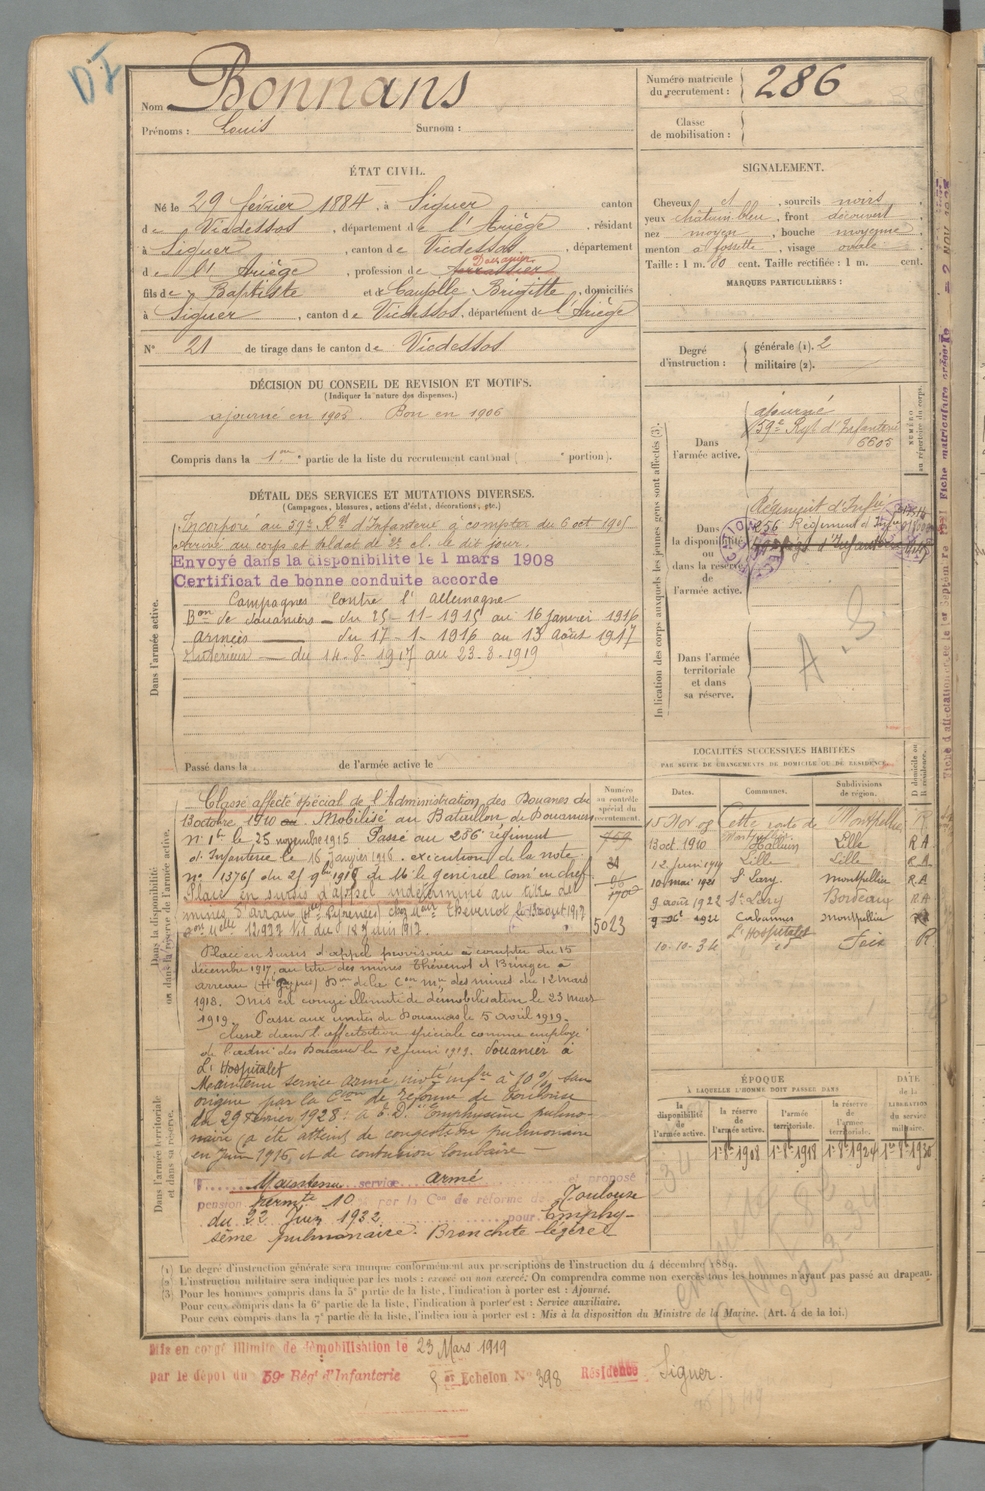 DI
Nom Bonnans
Prénoms : Louis Surnom :
Numéro matricule du recrutement : 286
Classe de mobilisation :
ÉTAT CIVIL.
Né le 29 février 1884, à Siguer canton
de Vicdessos, département de l'Ariège, résidant
à Siguer, canton de Vicdessos, département
de l'Ariège, profession de
fils de Baptiste et de Brigitte, domiciliés
à Siguer, canton de Vicdessos, département de l'Ariège
N° 21 de tirage dans le canton de Vicdessos
SIGNALEMENT.
Cheveux et, sourcils noirs
yeux châtain-bleu, front découvert
nez moyen, bouche moyenne
menton à fossette, visage ovale
Taille : 1 m. 80 cent. Taille rectifiée : 1 m. cent.
MARQUES PARTICULIÈRES :
Degré d'instruction : générale (1). 2
militaire (2).
DÉCISION DU CONSEIL DE REVISION ET MOTIFS.
(Indiquer la nature des dispenses.)
ajourné en 1905 Bon en 1906
Compris dans la 1re partie de la liste du recrutement cantonal ( e portion).
DÉTAIL DES SERVICES ET MUTATIONS DIVERSES.
(Campagnes, blessures, actions d'éclat, décorations, etc.)
Dans l'armée active.
Incorporé au 59e Rgt d'Infanterie à compter du 6 oct
Arrivé au corps et soldat de 2e cl. le dit jour.
Envoyé dans la disponibilite le 1 mars 1908
Certificat de bonne conduite accorde
Campagnes contre l'Allemagne
Bon de douaniers — du 25-11-1915 au 16 janvier 1916
Armées — du 17-1-1916 au 13 Août 1917
Intérieur — du 14-8-1917 au 23-3-1919
Passé dans la de l'armée active le
Indication des corps auxquels les jeunes gens sont affectés (3).
NUMÉRO au répertoire du corps.
Dans l'armée active.
ajourné
59e Rgt d'Infanterie
6605
Dans la disponibilité ou dans la réserve de l'armée active.
Régiment d'Infie
256 Régiment d'
Dans l'armée territoriale et dans sa réserve.
A. S.
LOCALITÉS SUCCESSIVES HABITÉES
PAR SUITE DE CHANGEMENTS DE DOMICILE OU DE RÉSIDENCE.
Dates. Communes. Subdivisions de région. D domicile ou R résidence.
15 Nov 08 Cette route de Montpellier R
13 oct. 1910 Halluin Lille R A
12 juin 1919 Lille Lille R A
10 mai 1921 St Lary Montpellier R A
9 août 1922 St Lary Bordeaux R A
1922 Cabannes Montpellier R A
10-10-34 L'Hospitalet Foix R
Dans la disponibilité ou dans la réserve de l'armée active.
Numéro au contrôle spécial du recrutement.
5023
Classé affecté spécial de l'Administration des Douanes du
13 octobre 1910 Mobilisé au Bataillon de Douaniers
n° 1 le 25 novembre 1915 Passé au 286e régiment
d'Infanterie le 16 Janvier 1916. exécution de la note
n° 1376/ du 25 9bre 1915 de M. le général comt en chef
Placé en sursis d'appel indéterminé au titre des
mines d'Arrau (Htes Pyrénées) chez Thévenot le 13 août 1917
12922 du 18 juin 1917.
Placé en sursis d'appel provisoire à compter du 15
décembre 1917, au titre des mines Thévenot et Bunger à
Arreau des mines du 12 mars
1918. Mis en congé illimité de démobilisation le 23 mars
1919. Passé aux unités de Douaniers le 5 avril 1919.
Classé dans l'affectation spéciale comme employé
de l'admon des Douanes le 12 juin 1919. Douanier à
L'Hospitalet
Maintenu service armé, invté infre à 10 % sans
origine par la Cion de réforme de Toulouse
du 29 février 1928 : Emphysème pulmo-
naire (a été atteint de congestion pulmonaire
en Juin 1916, et de contusion lombaire —
Dans l'armée territoriale et dans sa réserve.
Maintenu service armé proposé
pension permte 10 par la Con de réforme de Toulouse
du 22 Juin 1932 pour. Emphy-
sème pulmonaire. Bronchite légère
ÉPOQUE
À LAQUELLE L'HOMME DOIT PASSER DANS
DATE de la LIBÉRATION du service militaire.
la disponibilité de l'armée active. la réserve de l'armée active. l'armée territoriale. la réserve de l'armée territoriale.
1er 8bre 1908 1er 8bre 1918 1er 8bre 1924 1er 8bre 1930
(1) Le degré d'instruction générale sera indiqué conformément aux prescriptions de l'instruction du 4 décembre 1889.
(2) L'instruction militaire sera indiquée par les mots : exercé ou non exercé. On comprendra comme non exercés tous les hommes n'ayant pas passé au drapeau.
(3) Pour les hommes compris dans la 5e partie de la liste, l'indication à porter est : Ajourné.
Pour ceux compris dans la 6e partie de la liste, l'indication à porter est : Service auxiliaire.
Pour ceux compris dans la 7e partie de la liste, l'indication à porter est : Mis à la disposition du Ministre de la Marine. (Art. 4 de la loi.)
Mis en congé illimité de démobilisation le 23 Mars 1919
par le dépôt du 59e Régt d'Infanterie Echelon N° 398 Résidence Siguer.